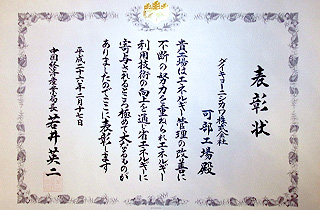 表彰状
ダイキョーニシカワ株式会社
可部工場殿
貴工場はエネルギー管理の改善に
不断の努力を重ねられエネルギー
利用技術の向上を通じ省エネルギーに
寄与されるところ極めて大なるものが
ありましたのでここに表彰します
平成二十六年二月十七日
中国経済産業局長 若井英二